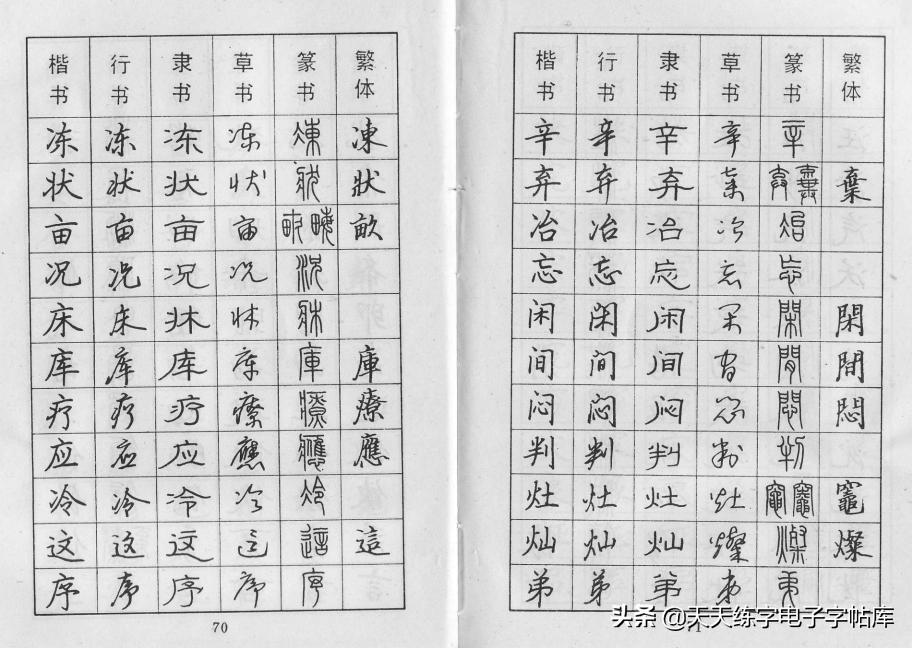 楷书 行书 隶书 草书 篆书 繁体
冻 冻 冻 冻 凍 凍
状 状 状 状 狀 狀
亩 亩 亩 亩 畝 畮 畝
况 况 况 况 況
床 床 牀 牀 牀
库 库 库 库 庫 庫
疗 疗 疗 療 療 療
应 应 应 應 應 應
冷 冷 冷 冷 冷
这 这 这 这 這 這
序 序 序 序 序
70
楷书 行书 隶书 草书 篆书 繁体
辛 辛 辛 辛 辛
弃 弃 弃 棄 弃 棄 棄
冶 冶 冶 冶 冶
忘 忘 忘 忘 忘
闲 闲 闲 闲 閑 閑
间 间 间 间 間 間
闷 闷 闷 闷 悶 悶
判 判 判 判 判
灶 灶 灶 灶 竈 竈 竈
灿 灿 灿 燦 燦 燦
弟 弟 弟 弟 弟
71
头条 @天天练字电子字帖库